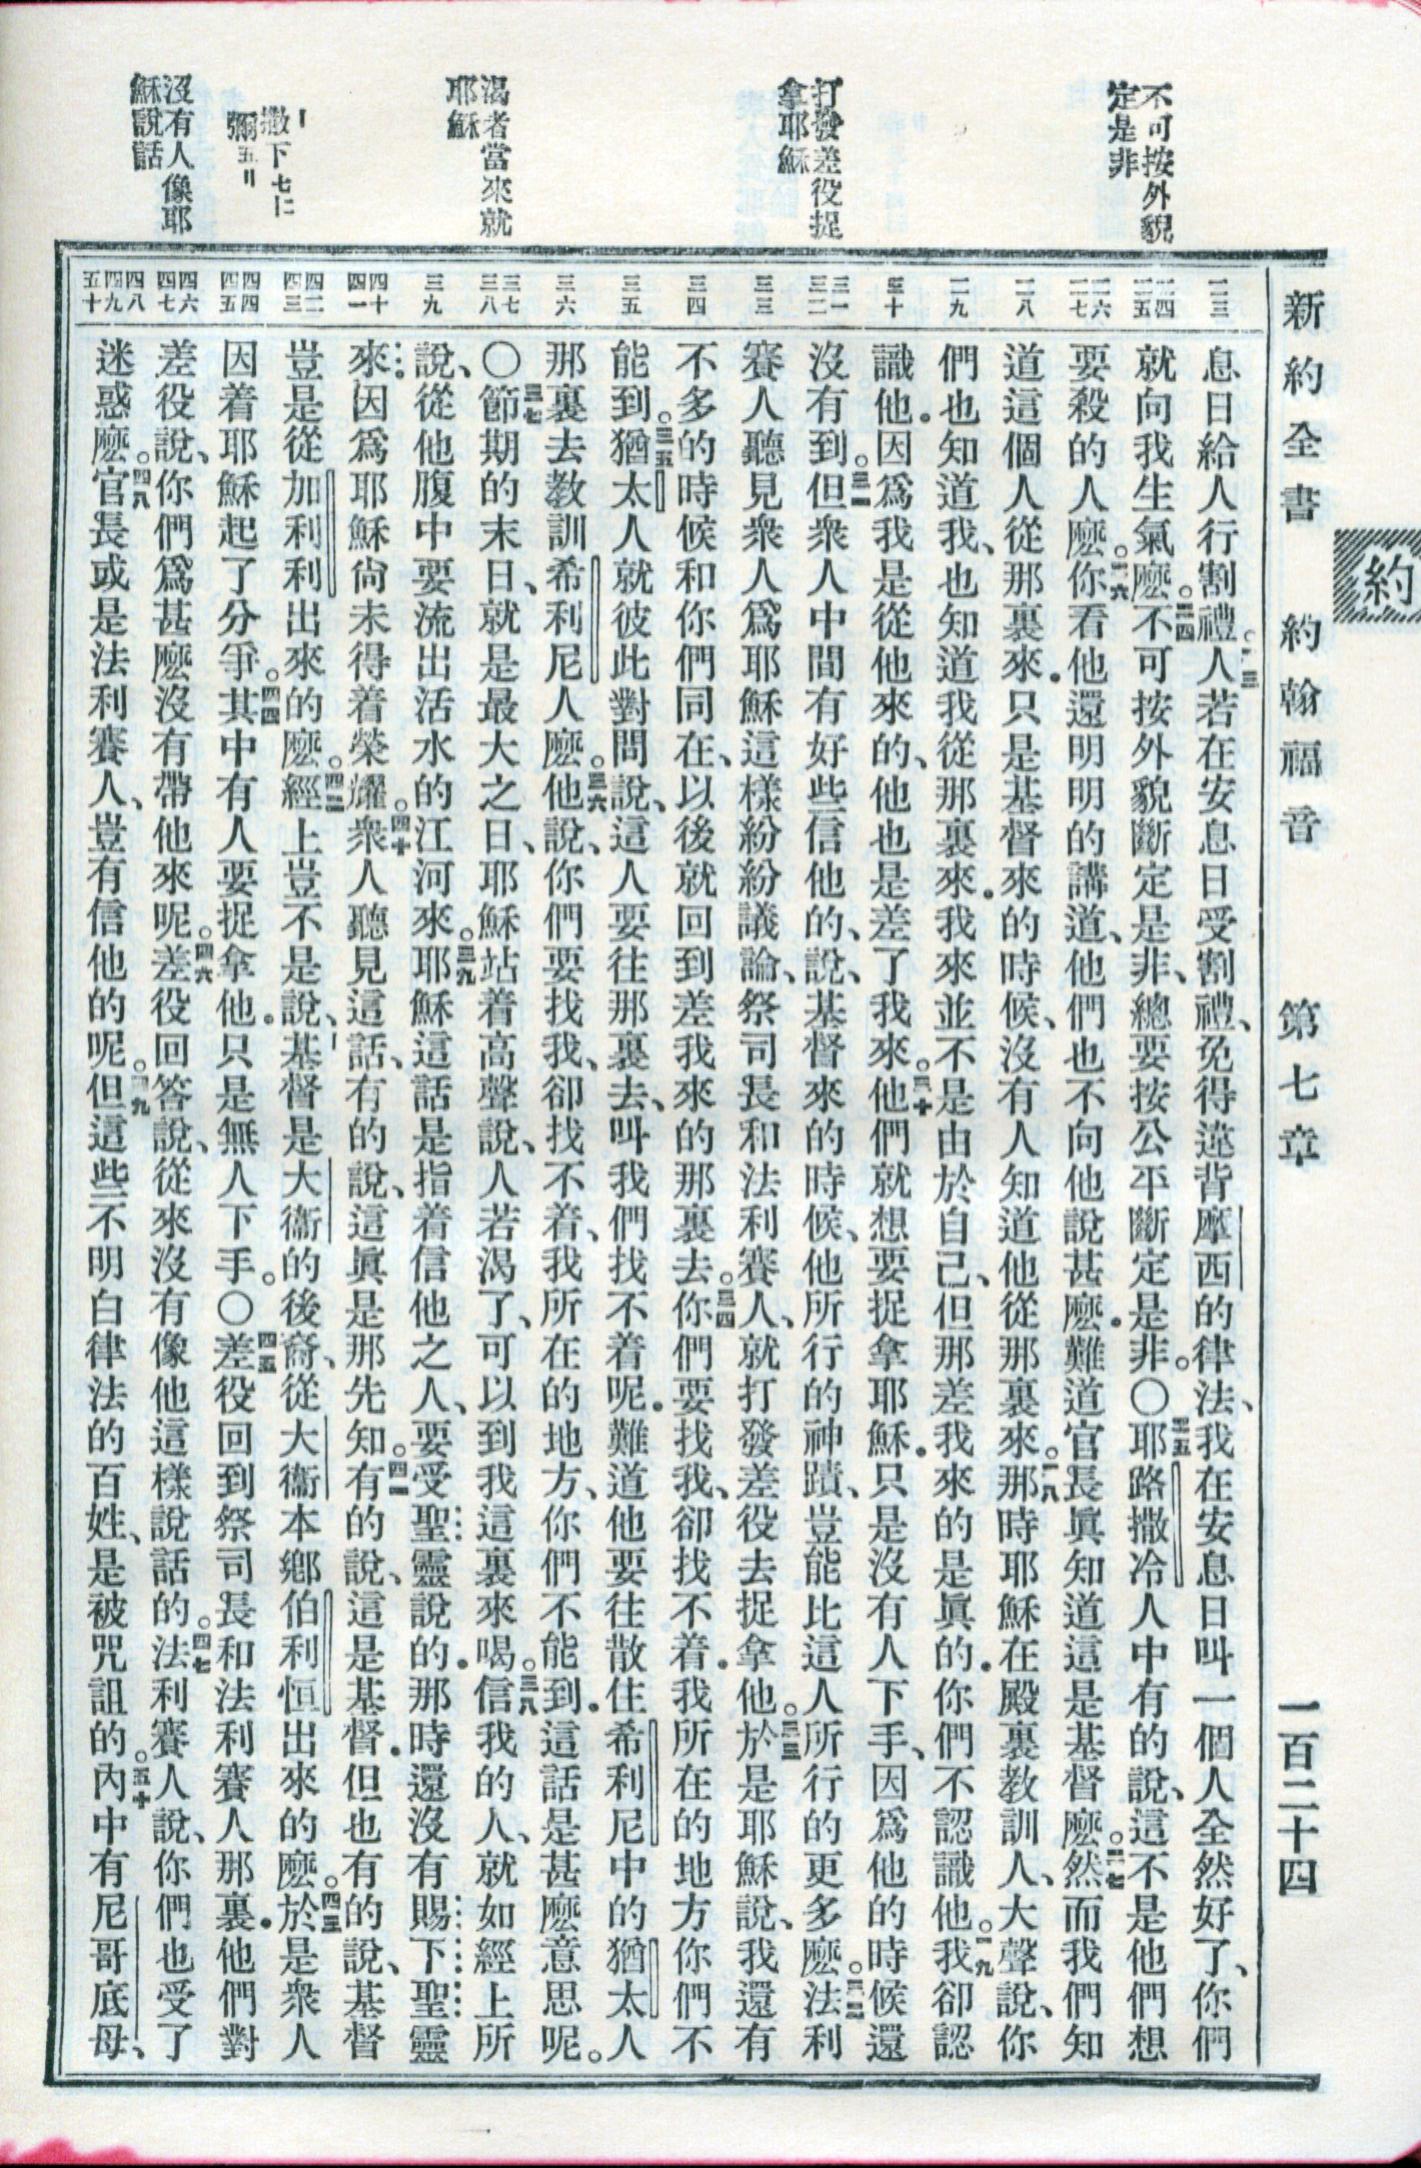 約
新約全書 約翰福音 第七章 一百二十四
不可按外貌
定是非
打發差役捉
拿耶穌
渴者當來就
耶穌
撒下七十二
彌五二
沒有人像耶
穌說話
二三
二四
二五
二六
二七
二八
二九
三十
三一
三二
三三
三四
三五
三六
三七
三八
三九
四十
四一
四二
四三
四四
四五
四六
四七
四八
四九
五十
息日給人行割禮。二三人若在安息日受割禮、免得違背摩西的律法、我在安息日叫一個人全然好了、你們
就向我生氣麽。二四不可按外貌斷定是非、總要按公平斷定是非。〇二五耶路撒冷人中有的說、這不是他們想
要殺的人麽。二六你看他還明明的講道、他們也不向他說甚麽．難道官長眞知道這是基督麽。二七然而我們知
道這個人從那裏來．只是基督來的時候、沒有人知道他從那裏來。二八那時耶穌在殿裏教訓人、大聲說、你
們也知道我、也知道我從那裏來．我來並不是由於自己、但那差我來的是眞的．你們不認識他。二九我卻認
識他．因爲我是從他來的、他也是差了我來。三十他們就想要捉拿耶穌．只是沒有人下手、因爲他的時候還
沒有到。三一但衆人中間有好些信他的、說、基督來的時候、他所行的神蹟、豈能比這人所行的更多麽。三二法利
賽人聽見衆人爲耶穌這樣紛紛議論、祭司長和法利賽人、就打發差役去捉拿他。三三於是耶穌說、我還有
不多的時候和你們同在、以後就回到差我來的那裏去。三四你們要找我、卻找不着．我所在的地方你們不
能到。三五猶太人就彼此對問說、這人要往那裏去、叫我們找不着呢．難道他要往散住希利尼中的猶太人
那裏去教訓希利尼人麽。三六他說、你們要找我、卻找不着、我所在的地方、你們不能到．這話是甚麽意思呢。
〇三七節期的末日、就是最大之日、耶穌站着高聲說、人若渴了、可以到我這裏來喝。三八信我的人、就如經上所
說、從他腹中要流出活水的江河來。三九耶穌這話是指着信他之人、要受聖靈說的．那時還沒有賜下聖靈
來、因爲耶穌尙未得着榮耀。四十衆人聽見這話、有的說、這眞是那先知。四一有的說、這是基督．但也有的說、基督
豈是從加利利出來的麽。四二經上豈不是說、基督是大衞的後裔、從大衞本鄉伯利恒出來的麽。四三於是衆人
因着耶穌起了分爭。四四其中有人要捉拿他．只是無人下手。〇四五差役回到祭司長和法利賽人那裏．他們對
差役說、你們爲甚麽沒有帶他來呢。四六差役回答說、從來沒有像他這樣說話的。四七法利賽人說、你們也受了
迷惑麽。四八官長或是法利賽人、豈有信他的呢。四九但這些不明白律法的百姓、是被咒詛的。五十內中有尼哥底母、